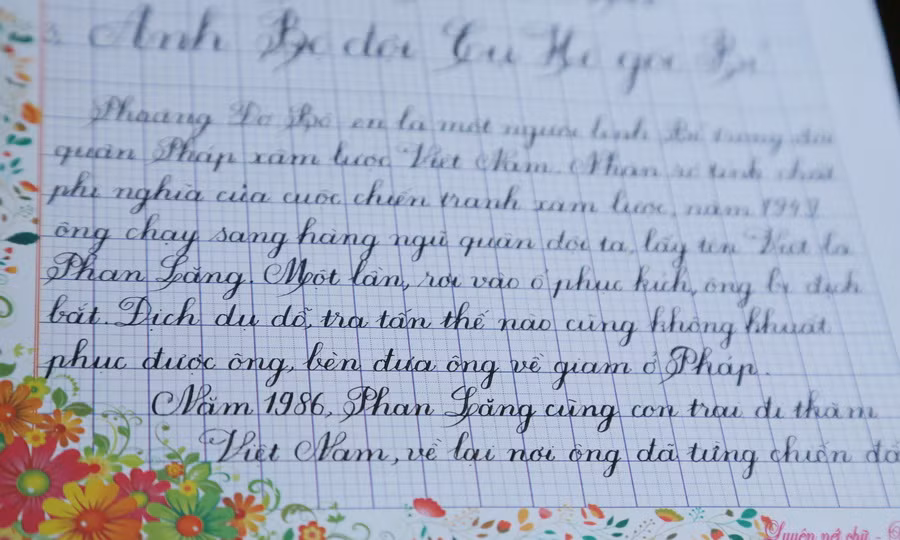 Anh Bộ đội Cụ Hồ gốc Bỉ
Phrăng Đơ Bô en là một người lính Bỉ trong đội
quân Pháp xâm lược Việt Nam. Nhận rõ tính chất
phi nghĩa của cuộc chiến tranh xâm lược, năm 1949
ông chạy sang hàng ngũ quân đội ta, lấy tên Việt là
Phan Lăng. Một lần, rơi vào ổ phục kích, ông bị địch
bắt. Địch dụ dỗ, tra tấn thế nào cũng không khuất
phục được ông, bèn đưa ông về giam ở Pháp.
Năm 1986, Phan Lăng cùng con trai đi thăm
Việt Nam, về lại nơi ông đã từng chiến đấ
Luyện nét chữ -